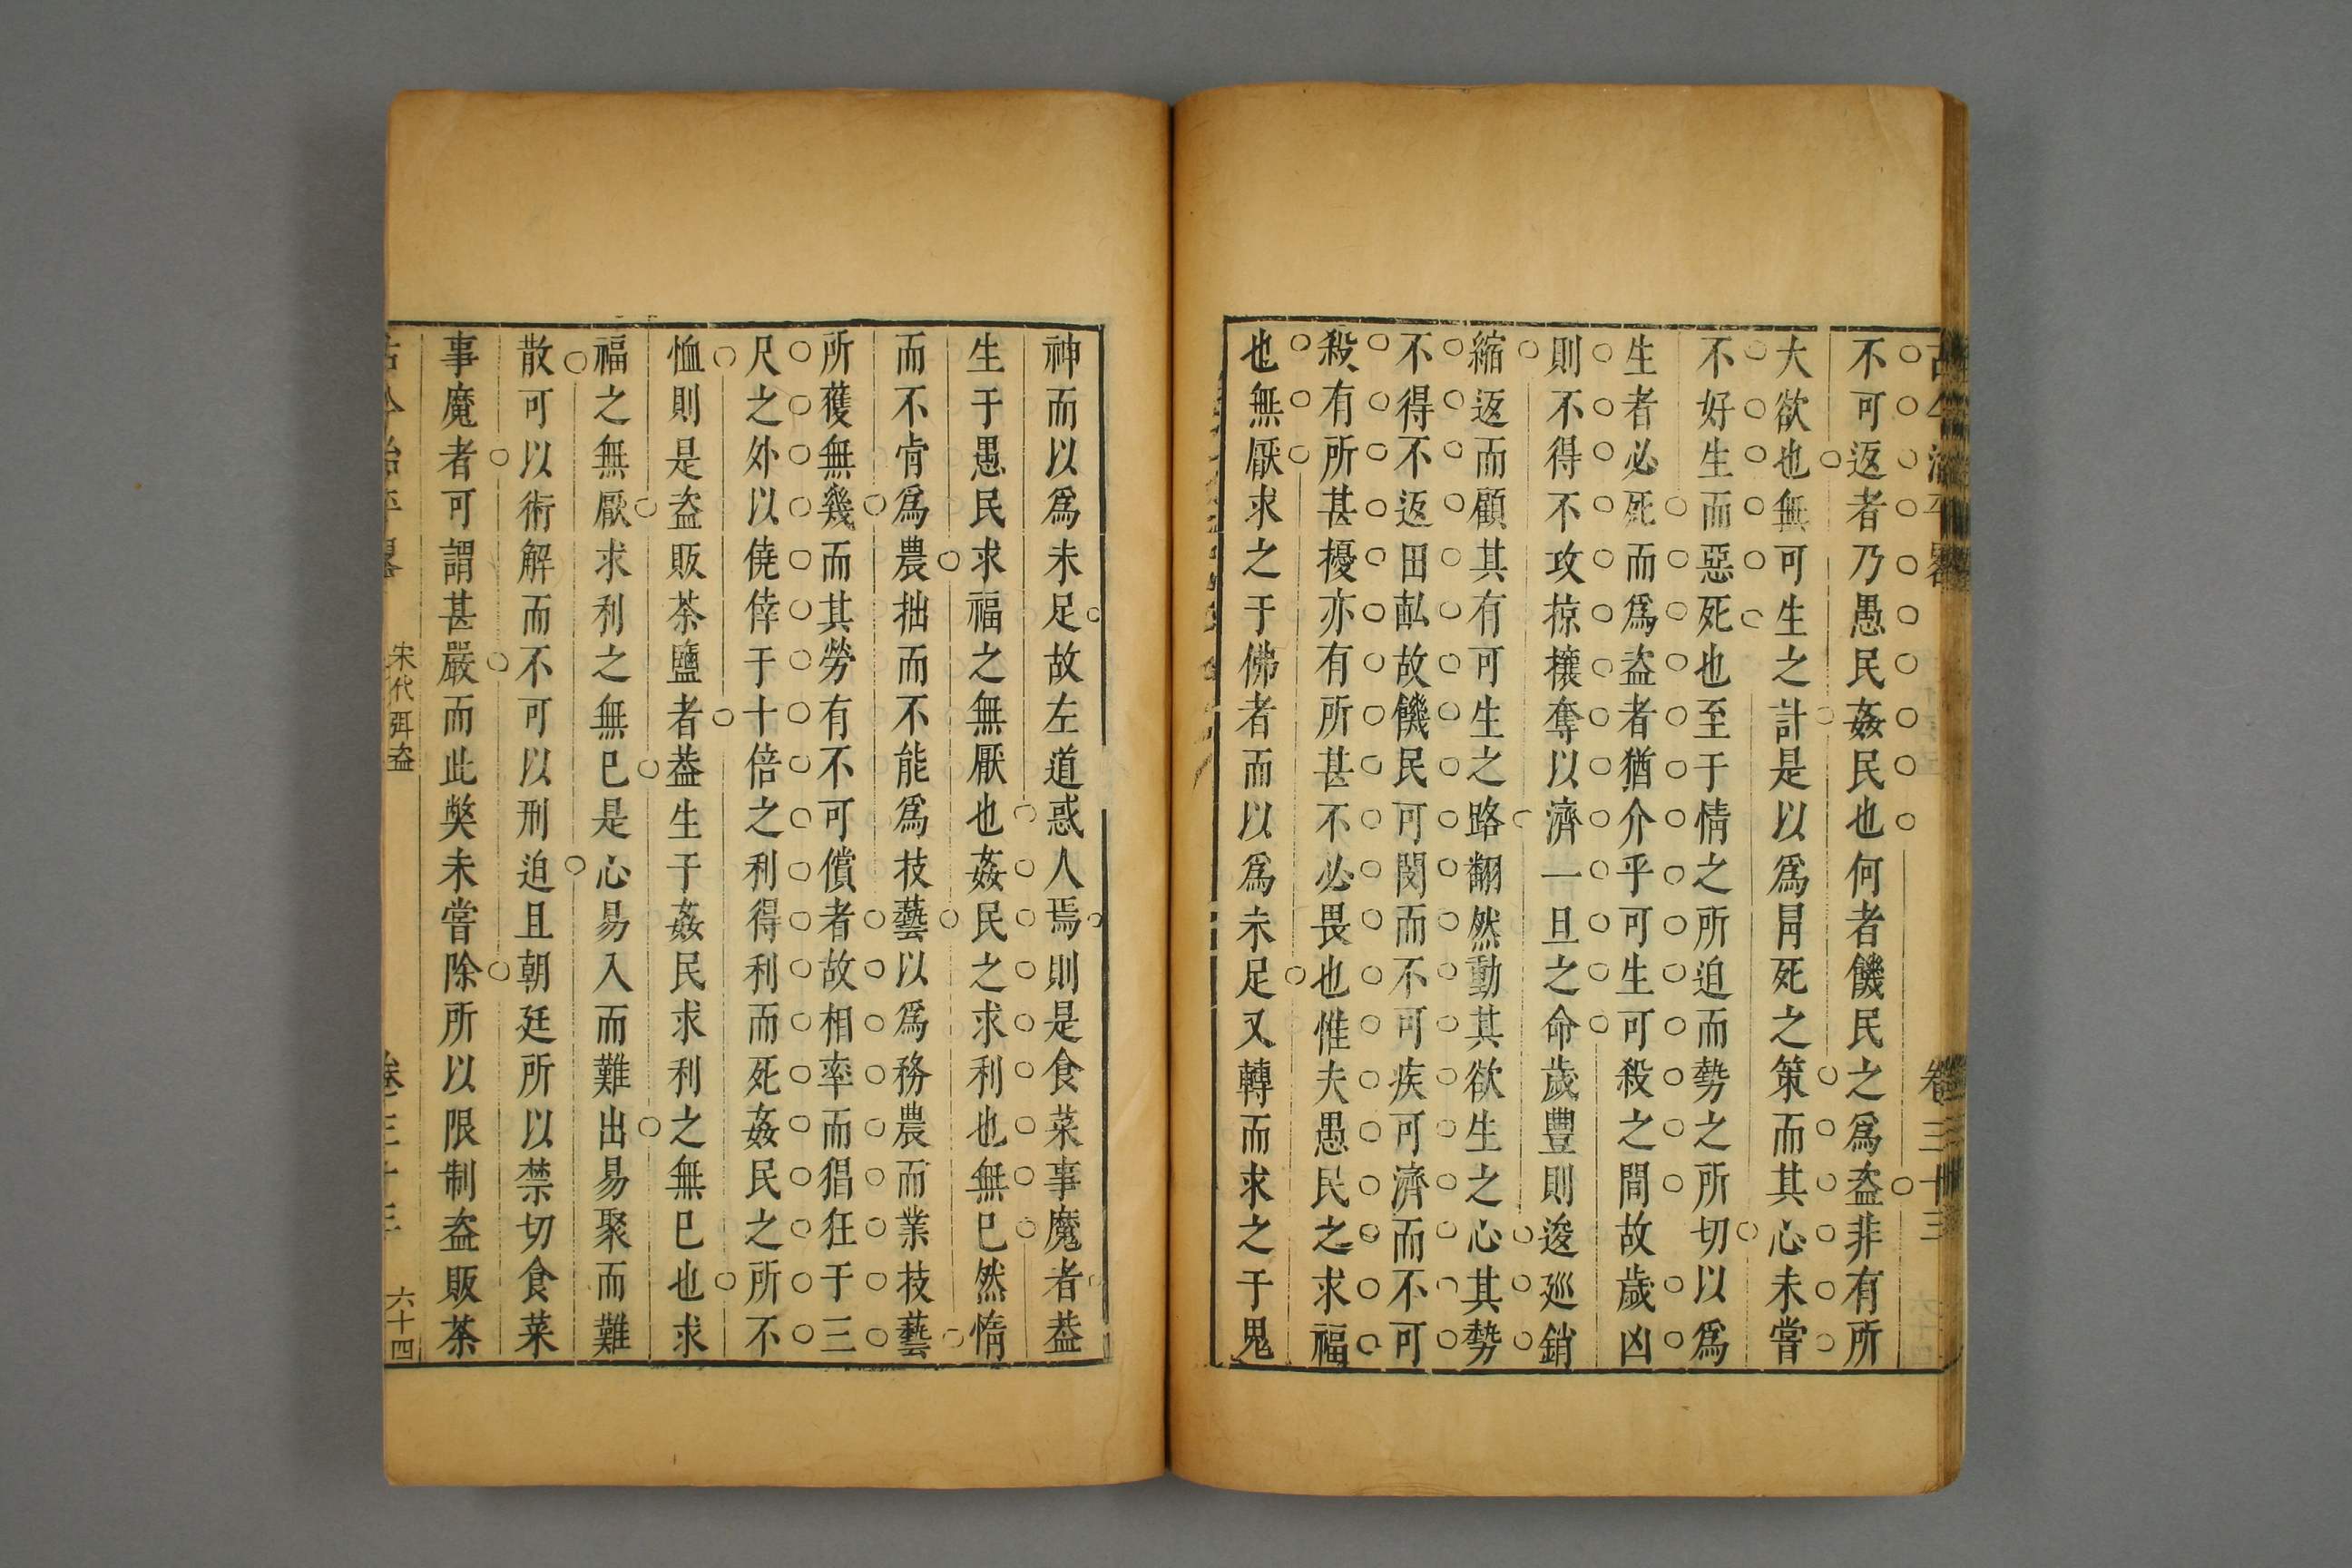 古今治平畧 卷三十三
不可返者乃愚民姦民也何者饑民之爲盗非有所
大欲也無可生之計是以爲冐死之策而其心未嘗
不好生而惡死也至于情之所迫而勢之所切以爲
生者必死而爲盗者猶介乎可生可殺之間故歲凶
則不得不攻掠攘奪以濟一旦之命歲豐則逡廵銷
縮返而顧其有可生之路翻然動其欲生之心其勢
不得不返田畝故饑民可閔而不可疾可濟而不可
殺有所甚擾亦有所甚不必畏也惟夫愚民之求福
也無厭求之于佛者而以爲未足又轉而求之于鬼
神而以爲未足故左道惑人焉則是食菜事魔者葢
生于愚民求福之無厭也姦民之求利也無已然惰
而不肯爲農拙而不能爲技藝以爲務農而業技藝
所獲無幾而其勞有不可償者故相率而猖狂于三
尺之外以僥倖于十倍之利得利而死姦民之所不
恤則是盗販茶鹽者葢生于姦民求利之無已也求
福之無厭求利之無已是心易入而難出易聚而難
散可以術解而不可以刑迫且朝廷所以禁切食菜
事魔者可謂甚嚴而此獘未嘗除所以限制盗販茶
古今治平畧 宋代弭盗 卷三十三 六十四